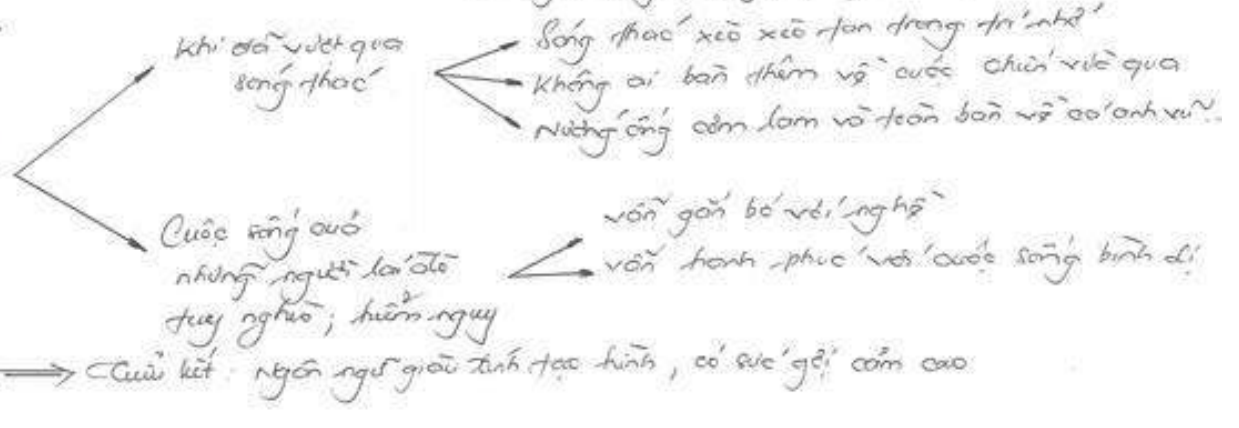 Khi đã vượt qua
sóng thác
Sóng thác xèo xèo tan trong trí nhớ
Không ai bàn thêm về cuộc chiến vừa qua
Nướng ống cơm lam và toàn bàn về cá anh vũ..
Cuộc sống của
những người lái đò
tuy nghèo, hiểm nguy
vẫn gắn bó với nghề
vẫn hạnh phúc với cuộc sống bình dị
⇒ Chuỗi kết: Ngôn ngữ giàu tính tạo hình, có sức gợi cảm cao